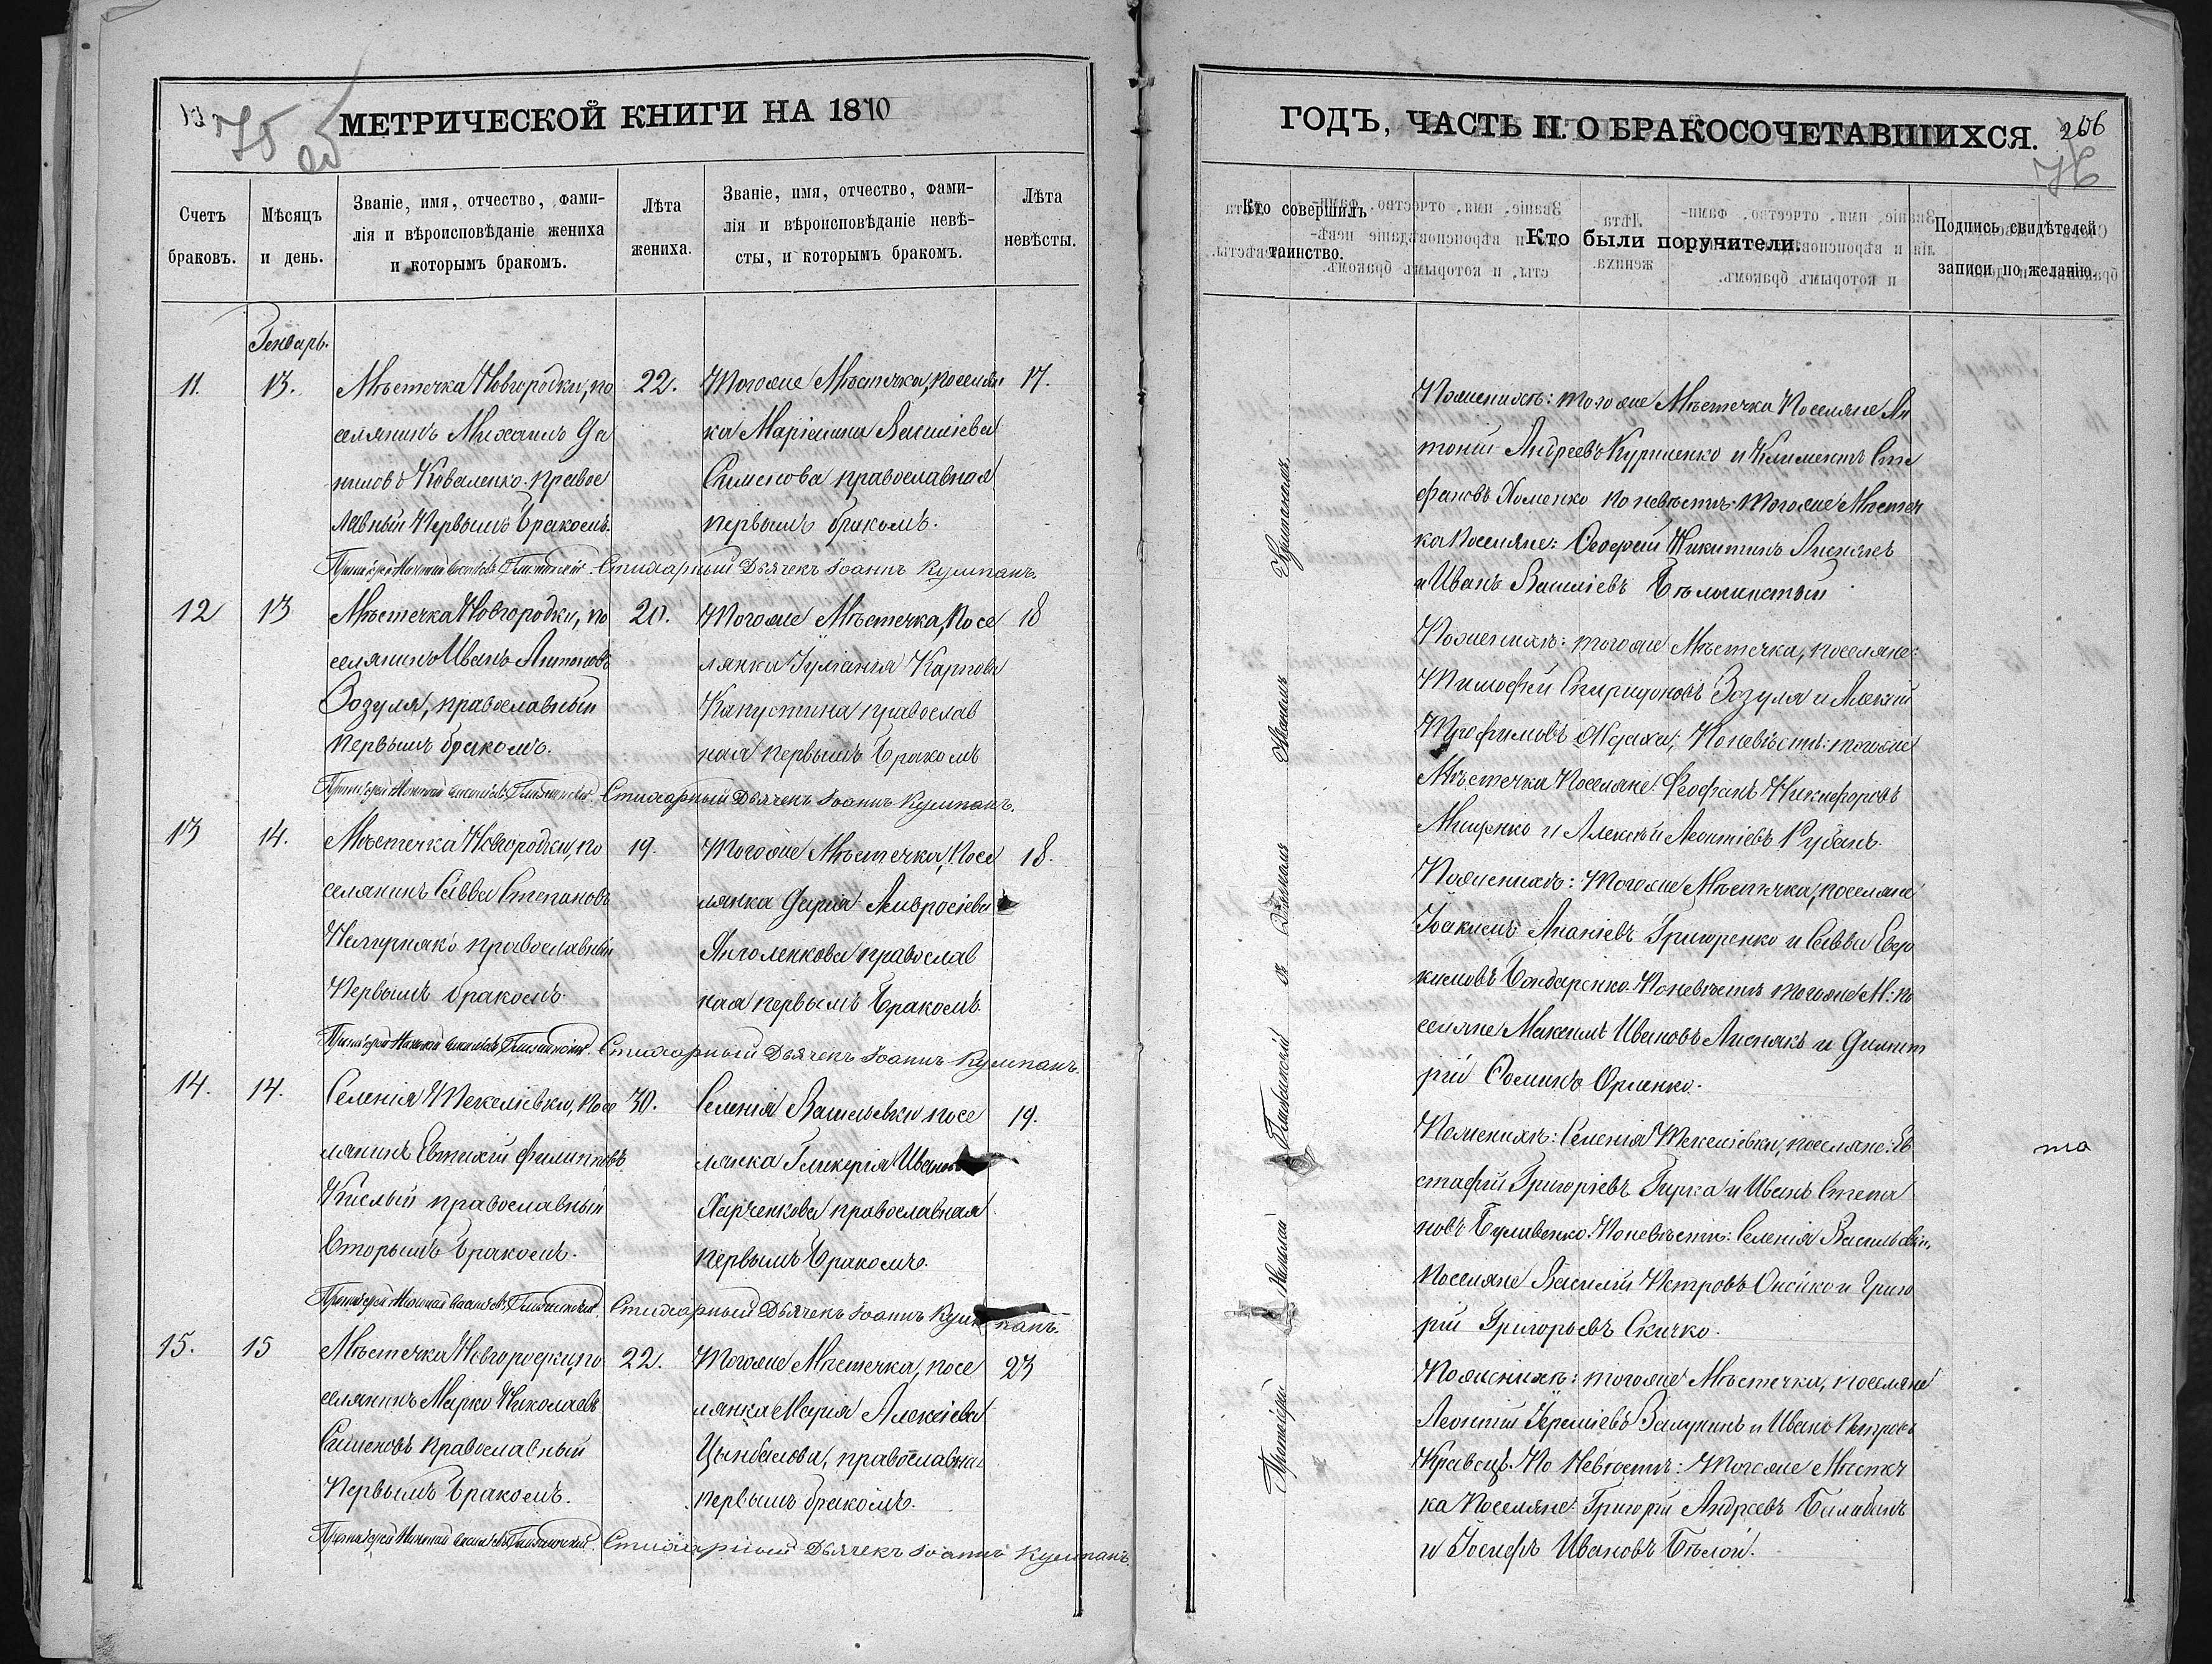 МЕТРИЧЕСКОЙ КНИГИ НА 1870
75
об
Счетъ браковъ.
Мѣсяцъ и день.
Званіе, имя, отчество, фами-
лія и вѣроисповѣданіе жениха
и которымъ бракомъ.
Лѣта жениха.
Званіе, имя, отчество, фами-
лія и вѣроисповѣданіе невѣ-
сты, и которымъ бракомъ.
Лѣта невѣсты.
Генварь.
11. 13.
Мѣстечка Новгородки, по
селянинъ Михаилъ Да
ниловъ Коваленко. православ
лавный Первымъ бракомъ.
22.
Тогоже Мѣстечка, поселян
ка Маріанна Василіева
Симонова православная
первымъ бракомъ.
17.
Протоіерей Николай Стихарный Дьячекъ Іоаннъ Кулпанъ.
12 13
Мѣстечка Новгородки, по
селянинъ Иванъ Антоновъ
Зозуля, православный
первымъ бракомъ.
20.
Тогоже Мѣстечка, Посе
лянка Іуліанія Карпова
Капустина православ
ная первымъ бракомъ
18
Протоіерей Николай Стихарный Дьячекъ Іоаннъ Кулпанъ.
13 14.
Мѣстечка Новгородки, по
селянинъ Савва Степановъ
православный
Первымъ бракомъ
19.
Тогоже Мѣстечка, Посе
лянка Дарія Амвросіева
православ
ная первымъ бракомъ.
18.
Протоіерей Николай Стихарный Дьячекъ Іоаннъ Кулпанъ.
14. 14.
Селенія Текеліевки, посе
лянинъ Евтихій Филипповъ
Кислый православный
Вторымъ бракомъ.
30.
Селенія Васильевки посе
лянка Гликерія Иванова
Харченкова православная
первымъ бракомъ.
19.
Протоіерей Николай Стихарный Дьячекъ Іоаннъ Кулпанъ.
15. 15
Мѣстечка Новгородки, по
селянинъ Марко Николаевъ
Симоновъ православный
Первымъ бракомъ.
22.
Тогоже Мѣстечка, посе
лянка Марія Алексіева
Цымбалова, православная
первымъ бракомъ.
23
Протоіерей Николай Стихарный Дьячекъ Іоаннъ Кулпанъ.
ГОДЪ, ЧАСТЬ II. О БРАКОСОЧЕТАВШИХСЯ.
206
76
Кто совершилъ таинство.
Кто были поручители.
Подпись свидѣтелей
записи по желанію.
Протоіерей Николай съ Дьячкомъ Іоанномъ
По женихѣ: тогоже Мѣстечка Поселяне Ан
тоній Андреевъ и Климентъ Сте
фановъ Хоменко по невѣстѣ: тогоже Мѣстеч
ка Поселяне: Никитинъ Лиснякъ
и Иванъ Василіевъ
По женихѣ: тогоже Мѣстечка, поселяне:
Тимофей Спиридоновъ Зозуля и Алексій
Трофимовъ По невѣстѣ: тогоже
Мѣстечка Поселяне: Феофанъ Никифоровъ
Мищенко и Алексѣй Леонтіевъ Рубанъ.
По женихѣ: Тогоже Мѣстечка, поселяне
Іоакимъ Ананіевъ Григоренко и Савва Евдо
кимовъ Бондаренко. По невѣстѣ тогоже М: по
селяне Максимъ Ивановъ Лиснякъ и Димит
рій Фоминъ Орленко.
По женихѣ: Селенія Текеліевки, поселяне: Ев
стафій Григоріевъ Гирка и Иванъ Степа
новъ Булавенко. По невѣстѣ: Селенія Васильевки,
Поселяне Василій Петровъ и Григо
рій Григорьевъ Скичко.
По женихѣ: тогоже Мѣстечка, поселяне
Леонтій Іереміевъ и Иванъ Петровъ
Кравецъ. По Невѣстѣ: Тогоже Мѣстеч
ка Поселяне: Григорій Андреевъ
и Іосифъ Ивановъ Бѣлой.